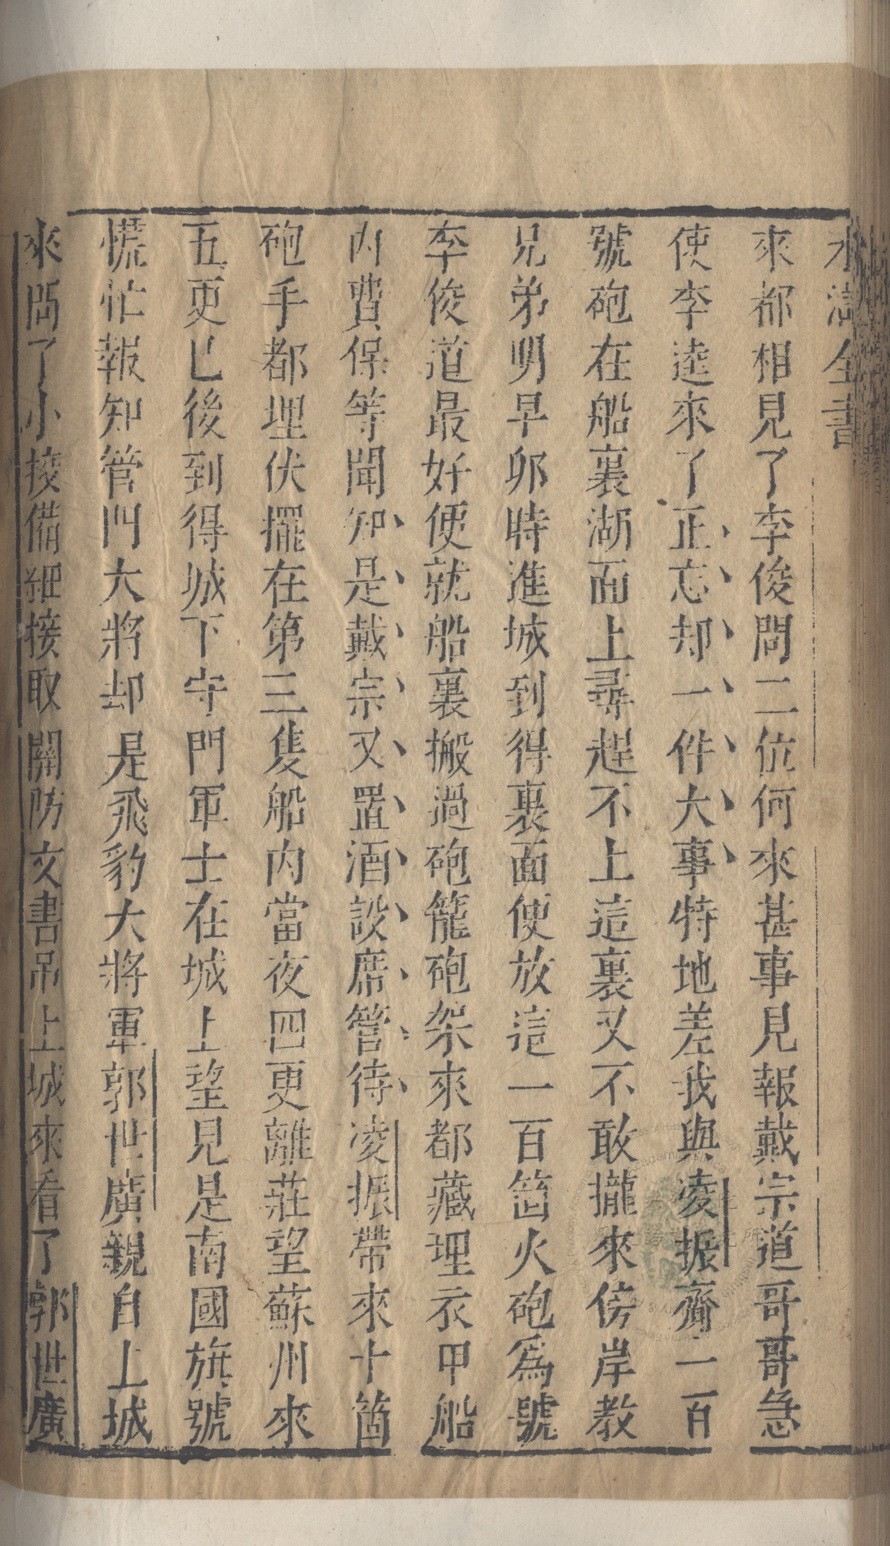 水滸全書
來都相見了李俊問二位何來甚事見報戴宗道哥哥急
使李逵來了正忘却一件大事特地差我與凌振齎一百
號砲在船裏湖面上尋趕不上這裏又不敢攏來傍岸教
兄弟明早卯時進城到得裏面便放這一百箇火砲爲號
李俊道最好便就船裏搬過砲籠砲架來都藏埋衣甲船
內費保等聞知是戴宗又置酒設席管待凌振帶來十箇
砲手都埋伏擺在第三隻船內當夜四更離莊望蘇州來
五更已後到得城下守門軍士在城上望見是南國旗號
慌忙報知管門大將却是飛豹大將軍郭世廣親自上城
來問了小校備細接取關防文書吊上城來看了郭世廣